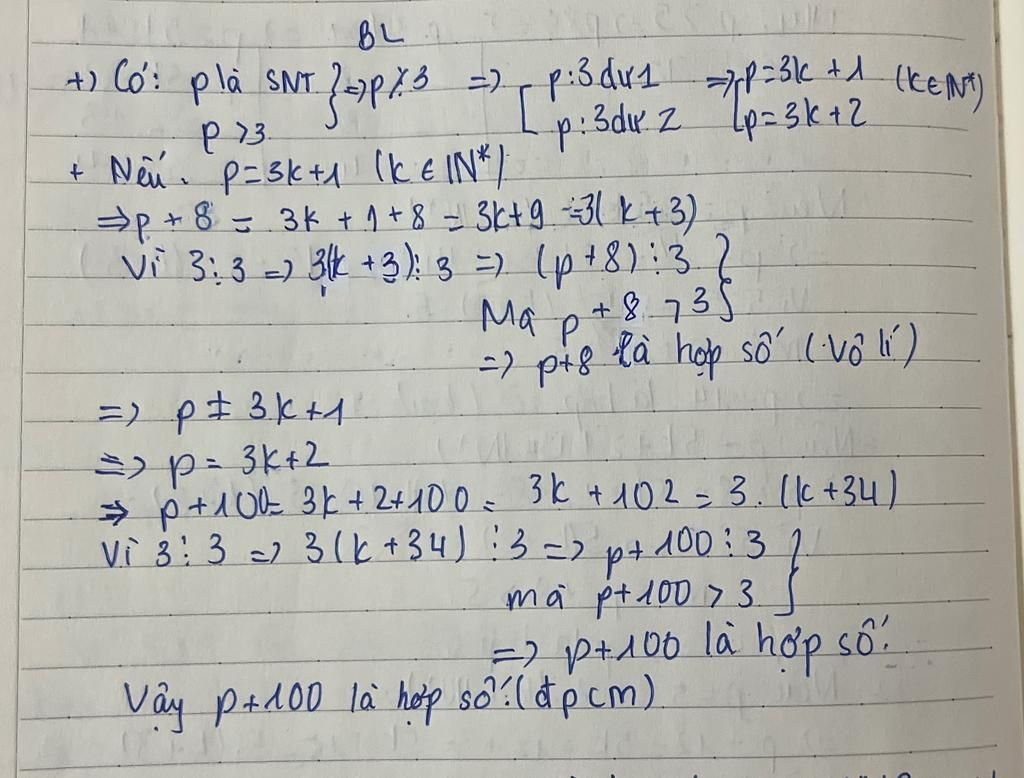 BL
+) Có: p là SNT } => p ⋮̸ 3 => [ p : 3 dư 1 => [ p = 3k + 1 (k ∈ N*)
p > 3 p : 3 dư 2 p = 3k + 2
+ Nếu. p = 3k + 1 (k ∈ N*)
=> p + 8 = 3k + 1 + 8 = 3k + 9 = 3(k + 3)
Vì 3 ⋮ 3 => 3(k + 3) ⋮ 3 => (p + 8) ⋮ 3 }
Mà p + 8 > 3
=> p + 8 là hợp số (Vô lí)
=> p ≠ 3k + 1
=> p = 3k + 2
=> p + 100 = 3k + 2 + 100 = 3k + 102 = 3. (k + 34)
Vì 3 ⋮ 3 => 3(k + 34) ⋮ 3 => p + 100 ⋮ 3 }
mà p + 100 > 3
=> p + 100 là hợp số.
Vậy p + 100 là hợp số. (đpcm)